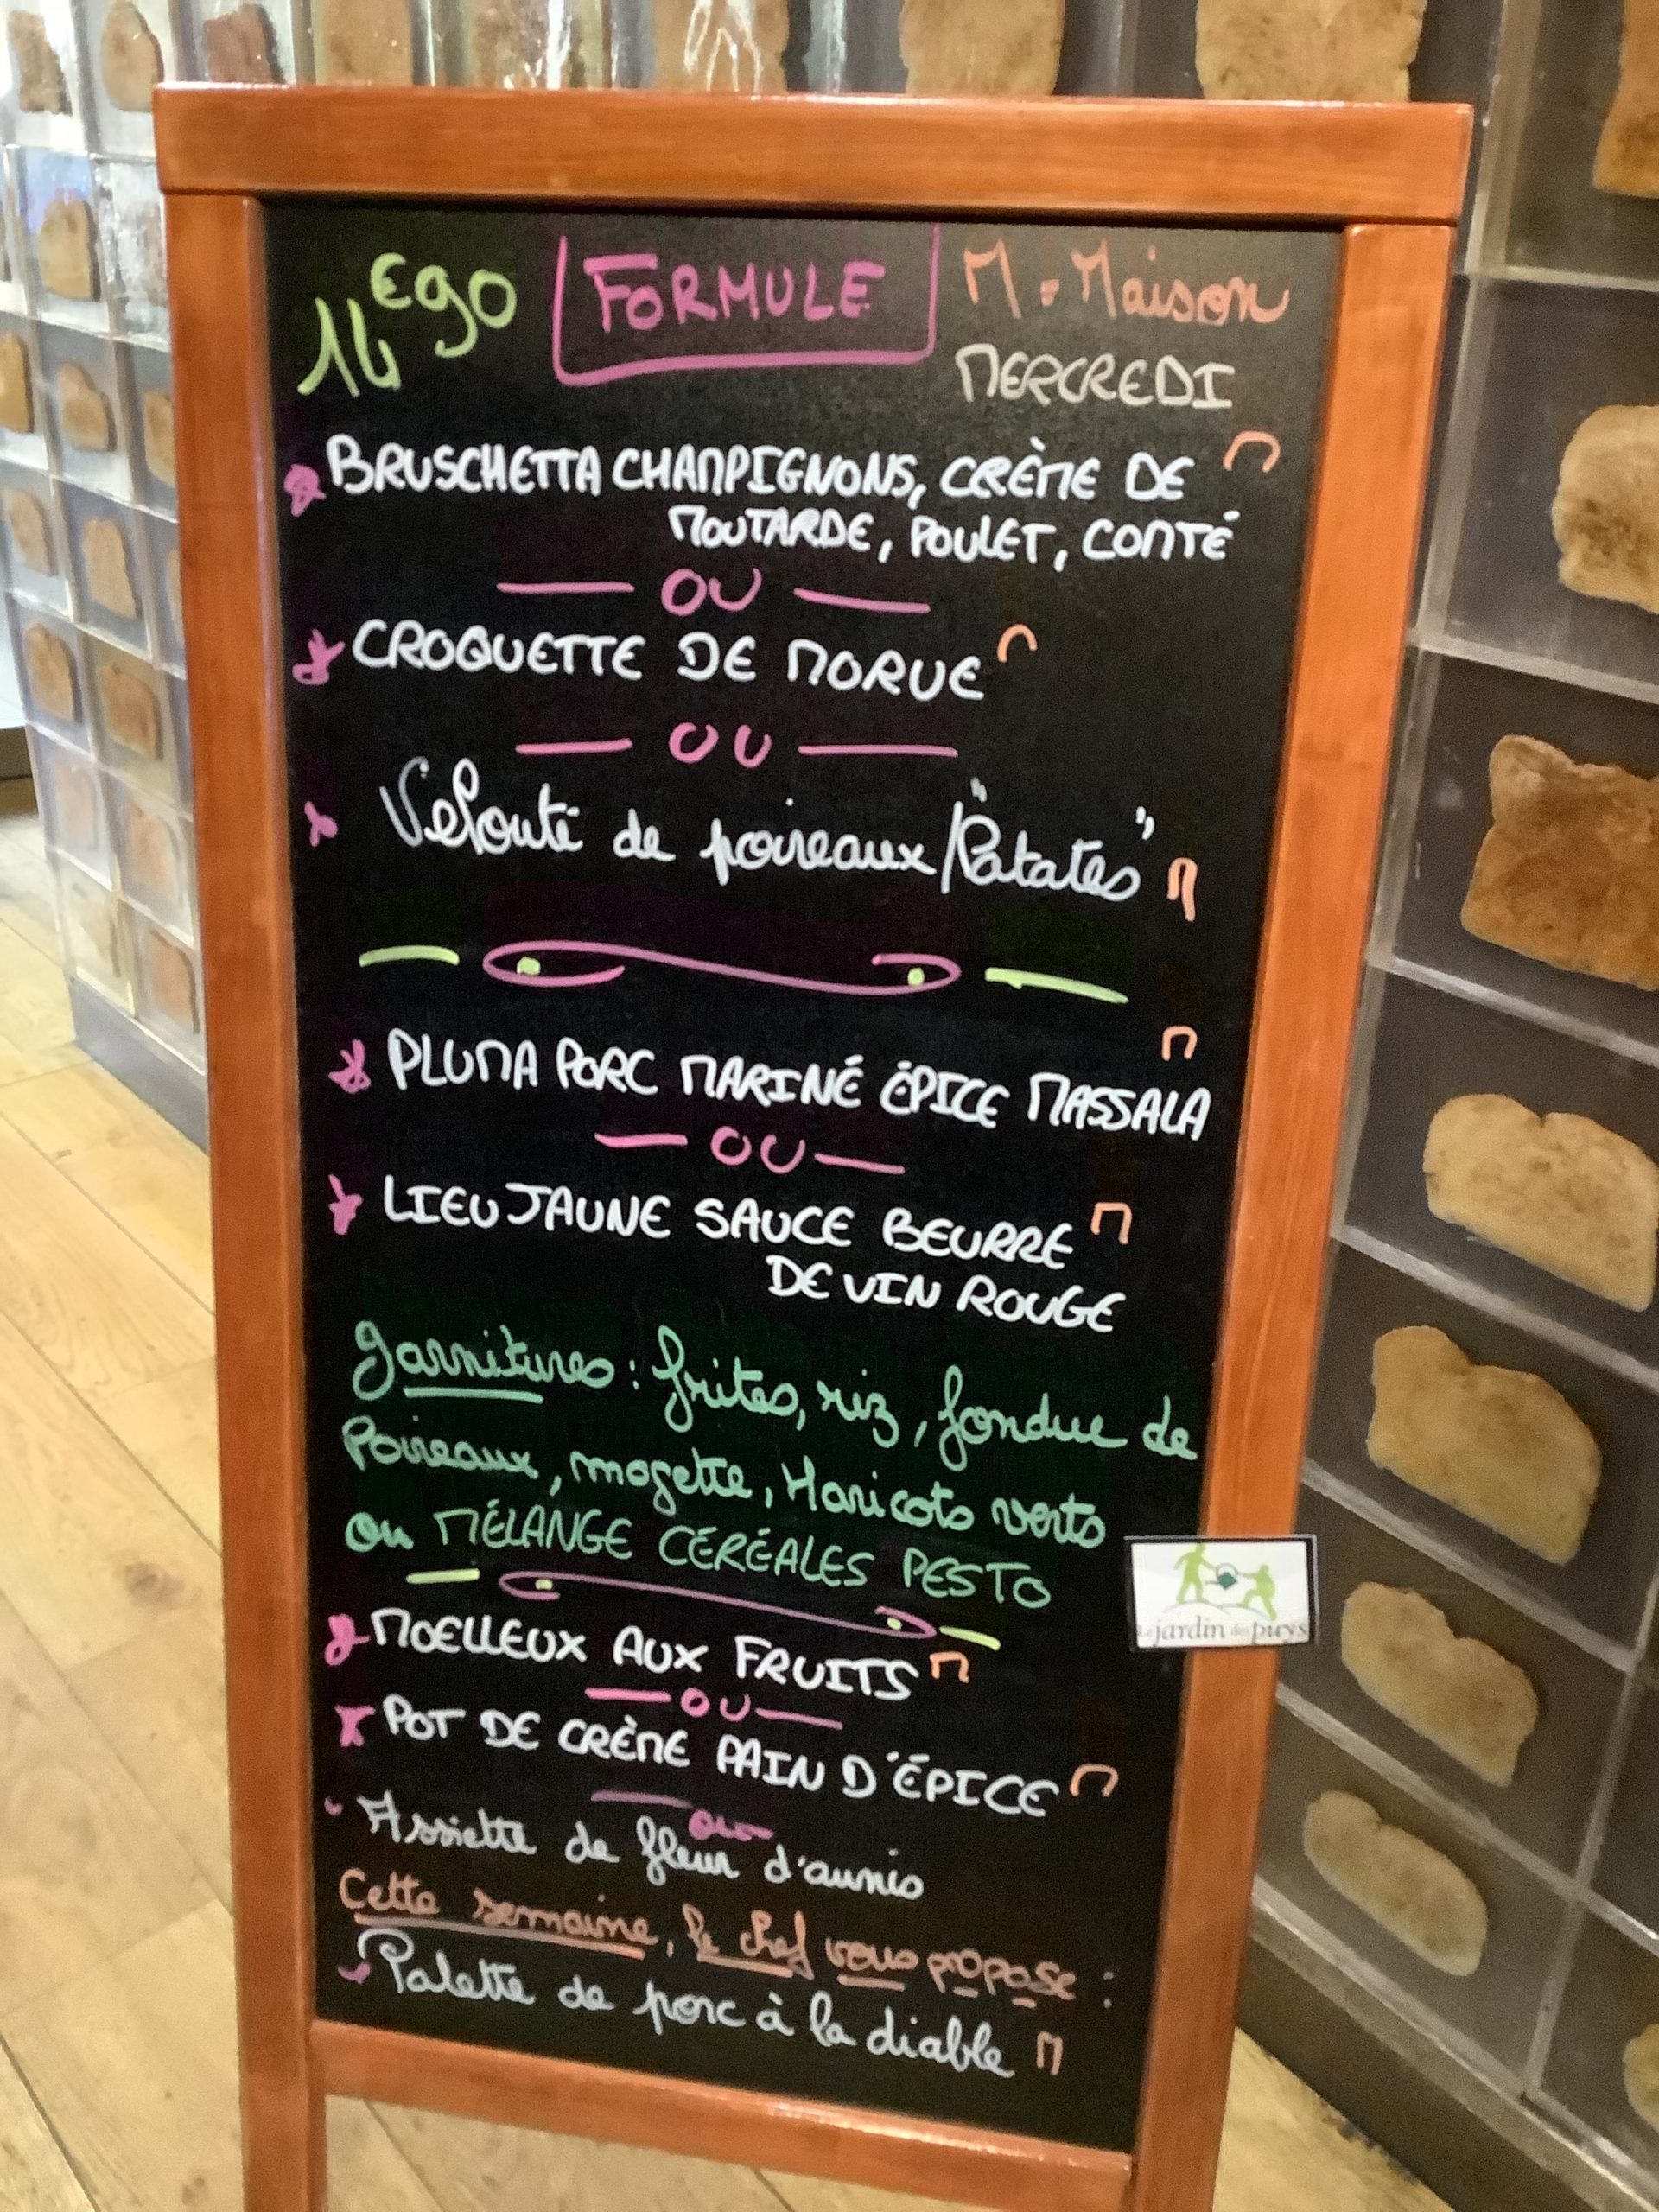 14€90 FORMULE M = Maison
MERCREDI
BRUSCHETTA CHAMPIGNONS, CRÈME DE M
MOUTARDE, POULET, COMTÉ
OU
CROQUETTE DE MORUE M
OU
Velouté de poireaux/"Patates" M
PLUMA PORC MARINÉ ÉPICE MASSALA M
OU
LIEU JAUNE SAUCE BEURRE M
DE VIN ROUGE
Garnitures : frites, riz, fondue de
Poireaux, mogette, Haricots verts
ou MÉLANGE CÉRÉALES PESTO
Le jardin des puys
MOELLEUX AUX FRUITS M
OU
POT DE CRÈME PAIN D'ÉPICE M
ou
Assiette de fleur d'aunis
Cette semaine, le chef vous propose :
Palette de porc à la diable M